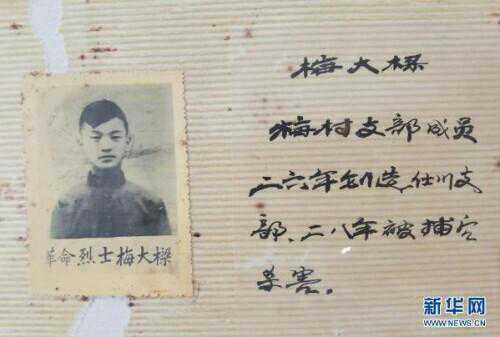 梅大樑
梅村支部成员
二六年创造仕川支
部、二八年被捕
杀害。
革命烈士梅大樑
新华网
WWW.NEWS.CN